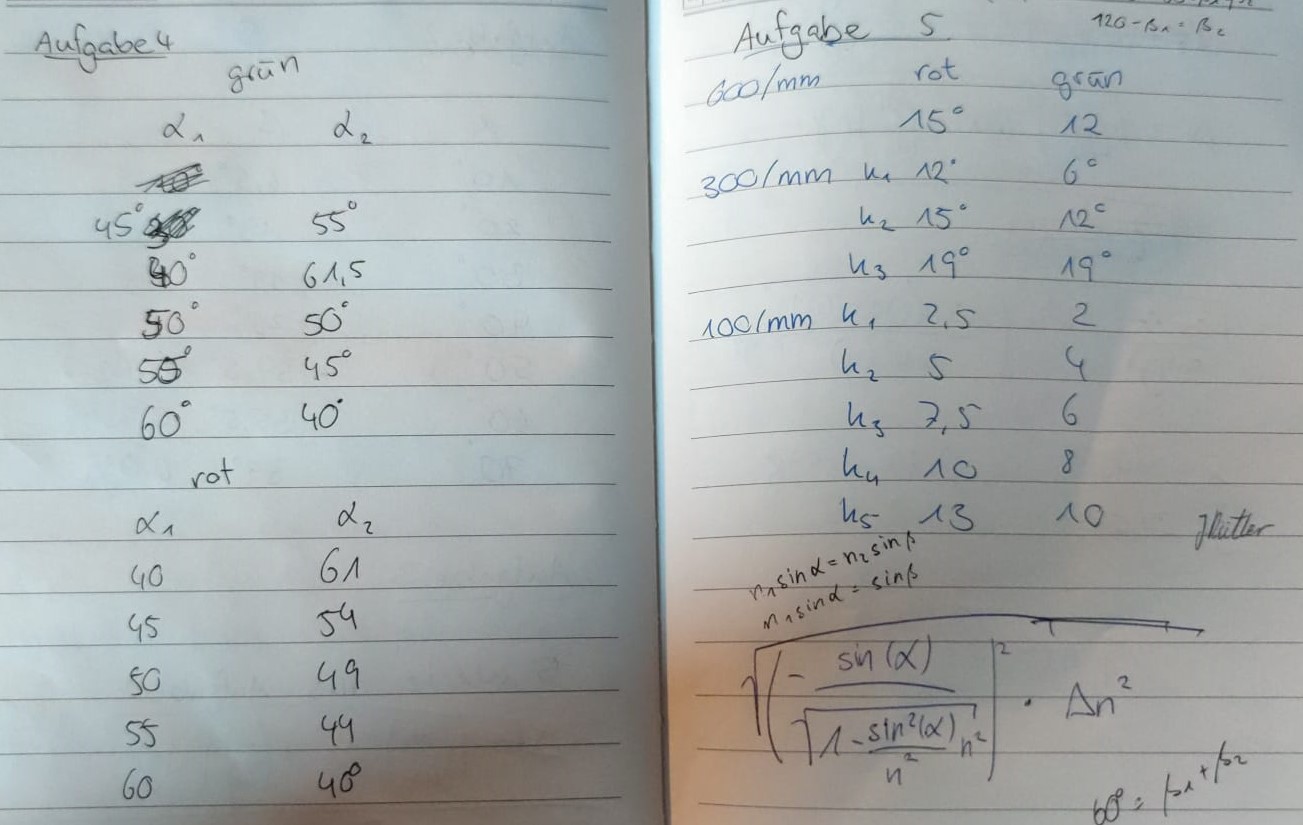 Aufgabe 4
grün
α₁ α₂
45° 55°
40° 61,5
50° 50°
55° 45°
60° 40°
rot
α₁ α₂
40 61
45 54
50 49
55 44
60 40°
120-β₁=β₂
Aufgabe 5
600/mm rot grün
15° 12
300/mm k₁ 12° 6°
k₂ 15° 12°
k₃ 19° 19°
100/mm k₁ 2,5 2
k₂ 5 4
k₃ 7,5 6
k₄ 10 8
k₅ 13 10
n₁sinα=n₂sinβ
n₁sinα=sinβ
√(- sin(α) / √(1-sin²(α)/n²) n²)² · Δn²
60°=β₁+β₂